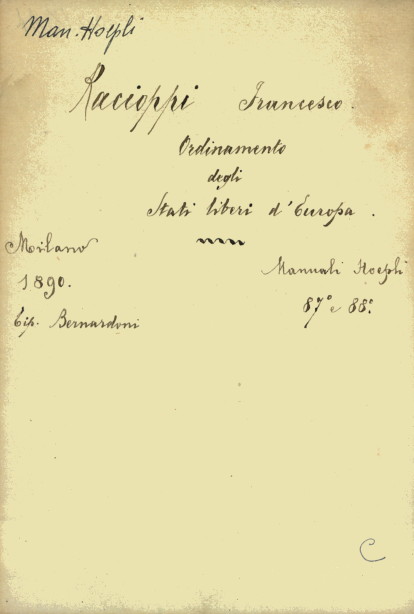 Man. Hoepli
Racioppi Francesco.
Ordinamento
degli
Stati liberi d'Europa.
Milano
1890.
Tip. Bernardoni
Manuali Hoepli
87° e 88°.
C